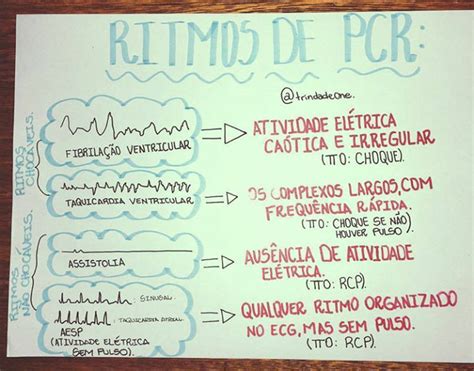 RITMOS DE PCR:
@trindadeone.
RITMOS
CHOCÁVEIS.
FIBRILAÇÃO VENTRICULAR
ATIVIDADE ELÉTRICA
CAÓTICA E IRREGULAR
(TTO: CHOQUE).
TAQUICARDIA VENTRICULAR
QS COMPLEXOS LARGOS, COM
FREQUÊNCIA RÁPIDA.
(TTO: CHOQUE SE NÃO
HOUVER PULSO).
RITMOS
NÃO CHOCÁVEIS.
ASSISTOLIA
AUSÊNCIA DE ATIVIDADE
ELÉTRICA.
(TTO: RCP).
: SINUSAL
: TAQUICARDIA ATRIAL
AESP
(ATIVIDADE ELÉTRICA
SEM PULSO).
QUALQUER RITMO ORGANIZADO
NO ECG, MAS SEM PULSO.
(TTO: RCP).